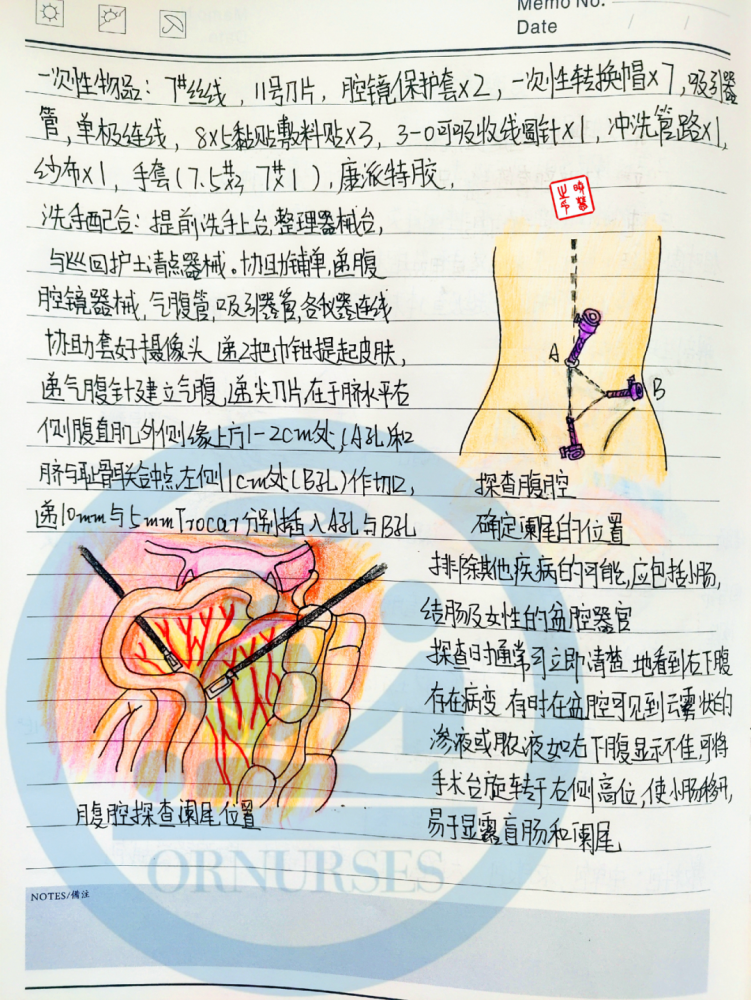 Memo No.
Date / /
一次性物品：7#丝线，11号刀片，腔镜保护套×2，一次性转换帽×7，吸引器
管，单极连线，8×5黏贴敷料贴×3，3-0可吸收线圆针×1，冲洗管路×1，
纱布×1，手套(7.5#×2 7#×1)，康派特胶．
洗手配合：提前洗手上台，整理器械台，
与巡回护士清点器械。协助铺单，递腹
腔镜器械，气腹管，吸引器管，各仪器连线
协助套好摄像头 递2把巾钳提起皮肤，
递气腹针建立气腹，递尖刀片，在于脐水平右
侧腹直肌外侧缘上方1-2cm处，(A孔)和
脐与耻骨联合中点，左侧1cm处(B孔)作切口，
递10mm与5mm Trocar分别插入A孔与B孔
A
B
探查腹腔
确定阑尾的位置
排除其他疾病的可能，应包括小肠，
结肠及女性的盆腔器官
探查时通常可立即清楚地看到右下腹
存在病变 有时在盆腔可见到云雾状的
渗液或脓液如右下腹显示不佳，可将
手术台旋转于左侧高位，使小肠移开，
易于显露盲肠和阑尾
腹腔探查阑尾位置
ORNURSES
NOTES/備注